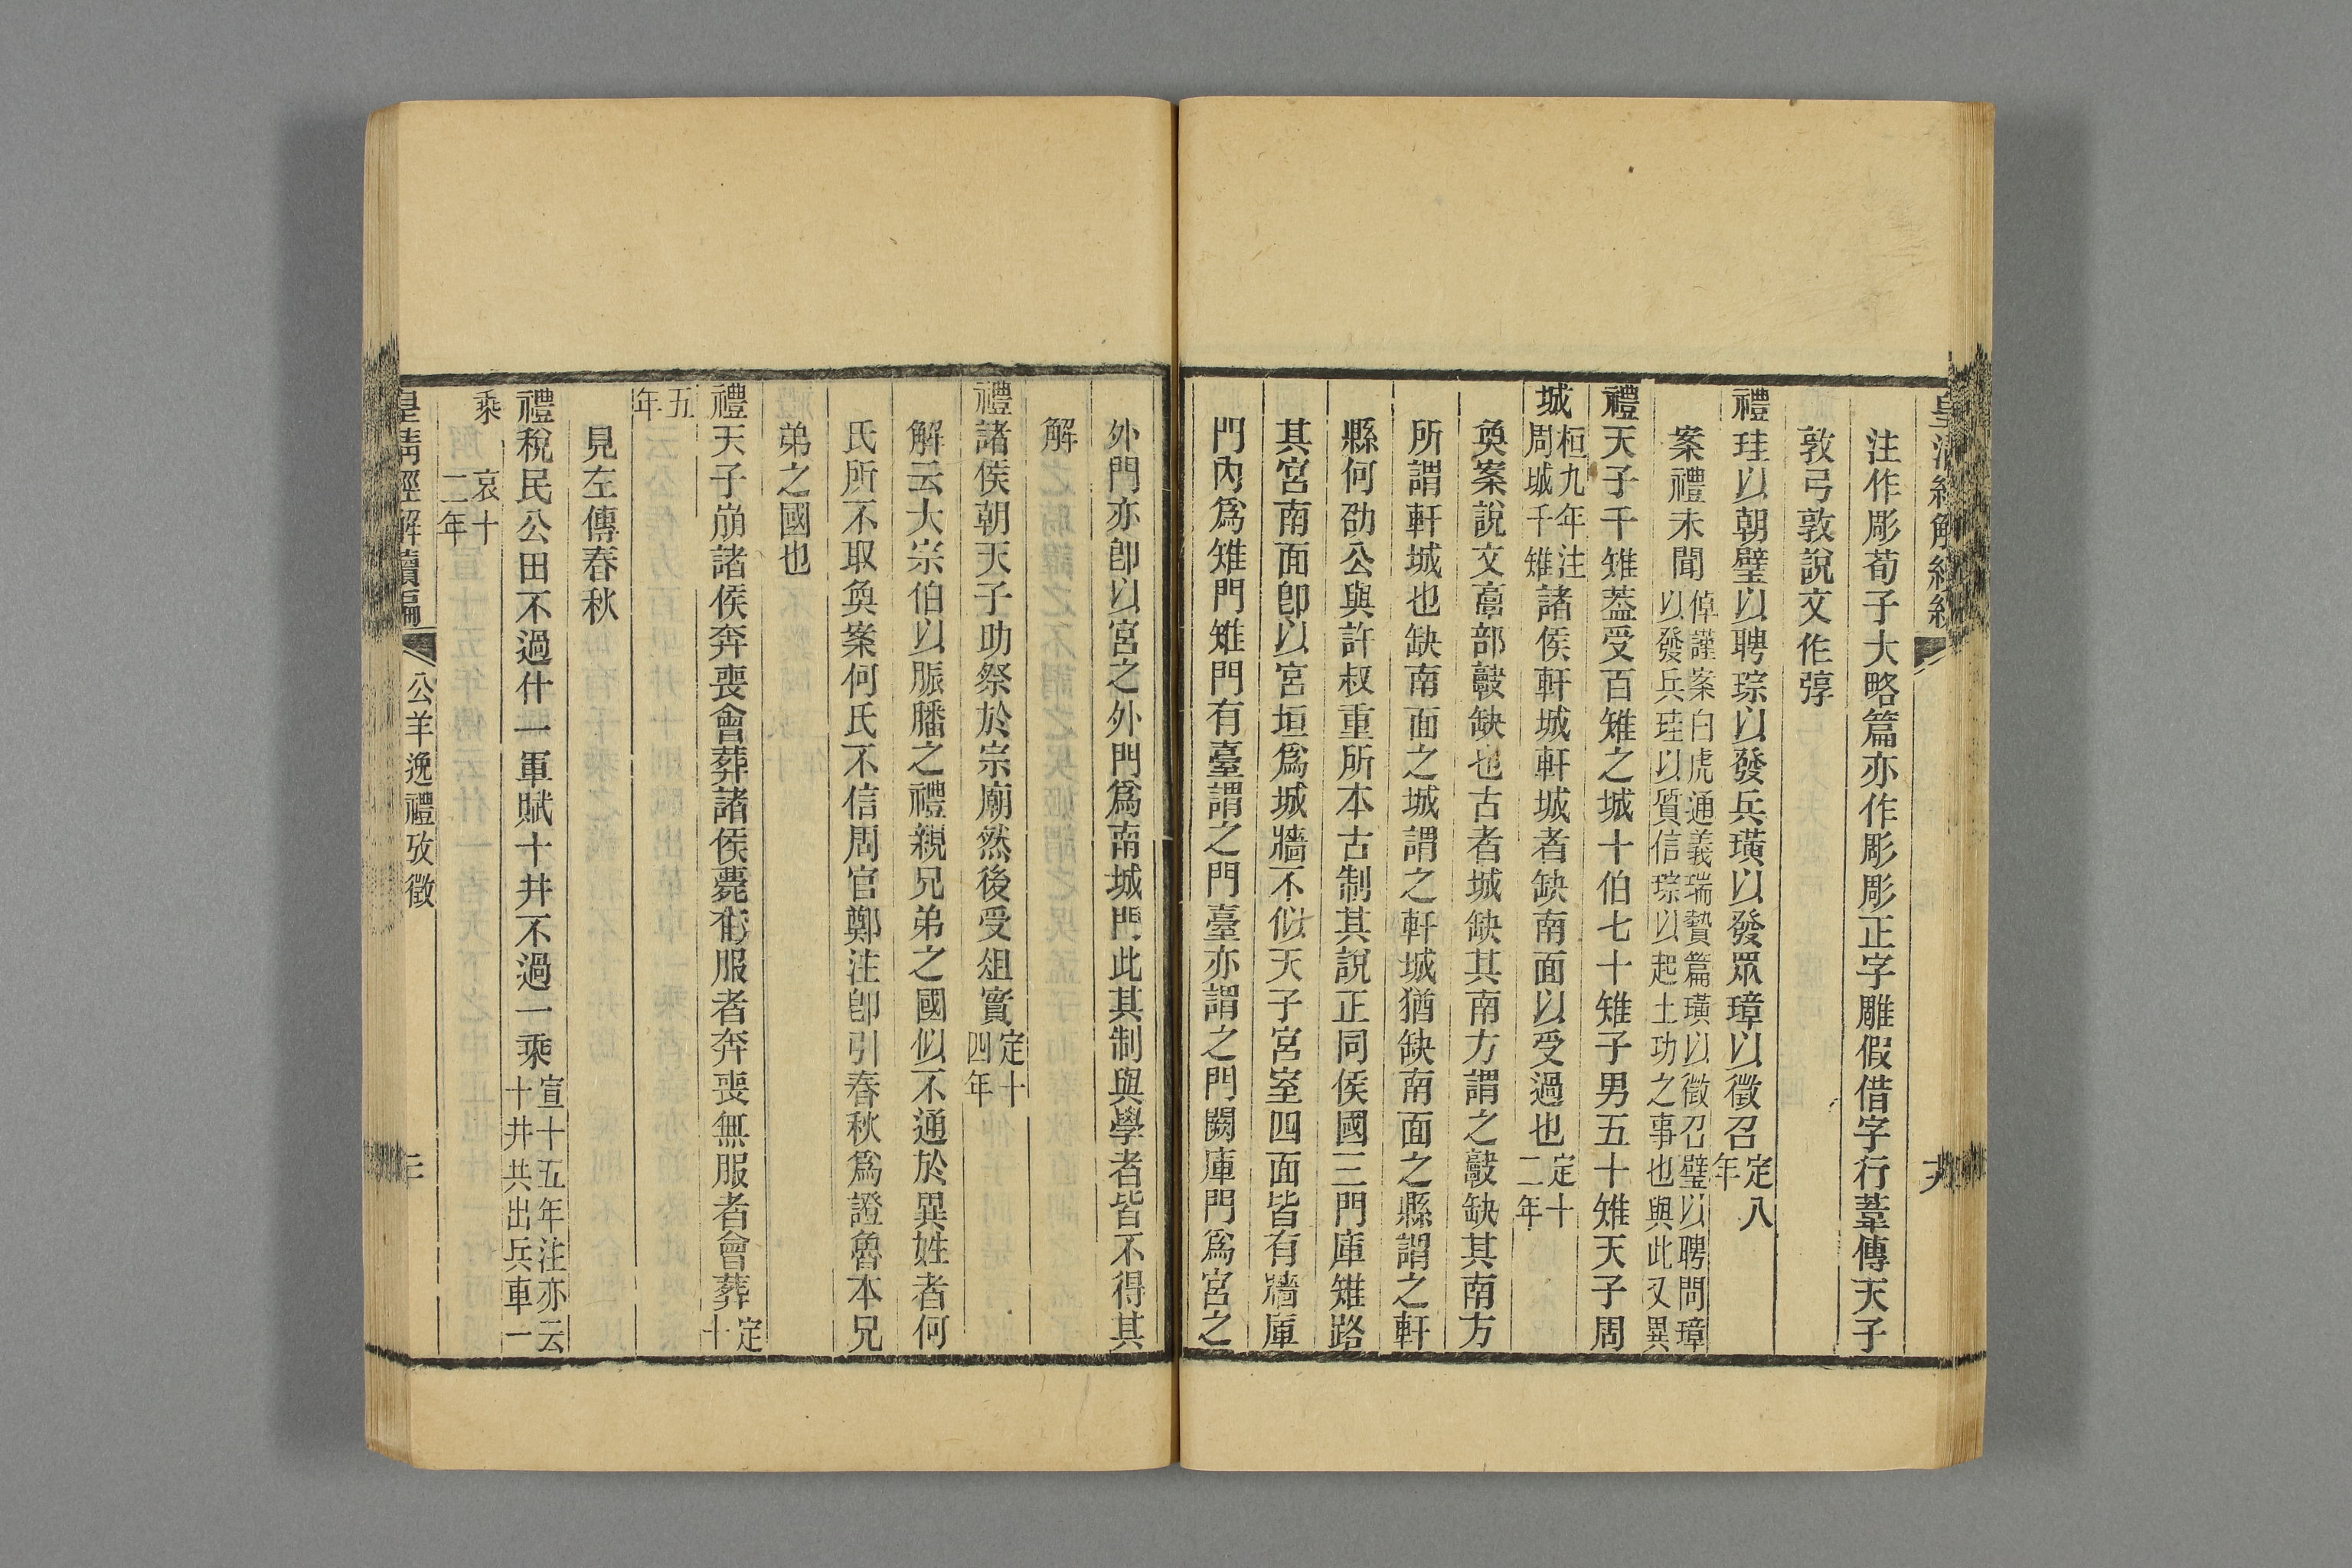 注作彫荀子大略篇亦作彫彫正字雕假借字行葦傳天子
敦弓敦說文作弴
禮珪以朝璧以聘琮以發兵璜以發眾璋以徵召定八年
案禮未聞倬謹案白虎通義瑞贄篇璜以徵召璧以聘問璋以發兵珪以質信琮以起土功之事也與此又異
禮天子千雉葢受百雉之城十伯七十雉子男五十雉天子周
城桓九年注周城千雉諸侯軒城軒城者缺南面以受過也定十二年
奐案說文𩫖部𩫏缺也古者城缺其南方謂之𩫏缺其南方
所謂軒城也缺南面之城謂之軒城猶缺南面之縣謂之軒
縣何劭公與許叔重所本古制其說正同侯國三門庫雉路
其宮南面卽以宮垣爲城牆不似天子宮室四面皆有牆庫
門內爲雉門雉門有臺謂之門臺亦謂之門闕庫門爲宮之
外門亦卽以宮之外門爲南城門此其制與學者皆不得其
解
禮諸侯朝天子助祭於宗廟然後受俎實定十四年
解云大宗伯以脤膰之禮親兄弟之國似不通於異姓者何
氏所不取奐案何氏不信周官鄭注卽引春秋爲證魯本兄
弟之國也
禮天子崩諸侯奔喪會葬諸侯薨有服者奔喪無服者會葬定十
五年
見左傳春秋
禮稅民公田不過什一軍賦十井不過一乘宣十五年注亦云十井共出兵車一
乘 哀十二年
皇清經解續編 公羊逸禮攷徵